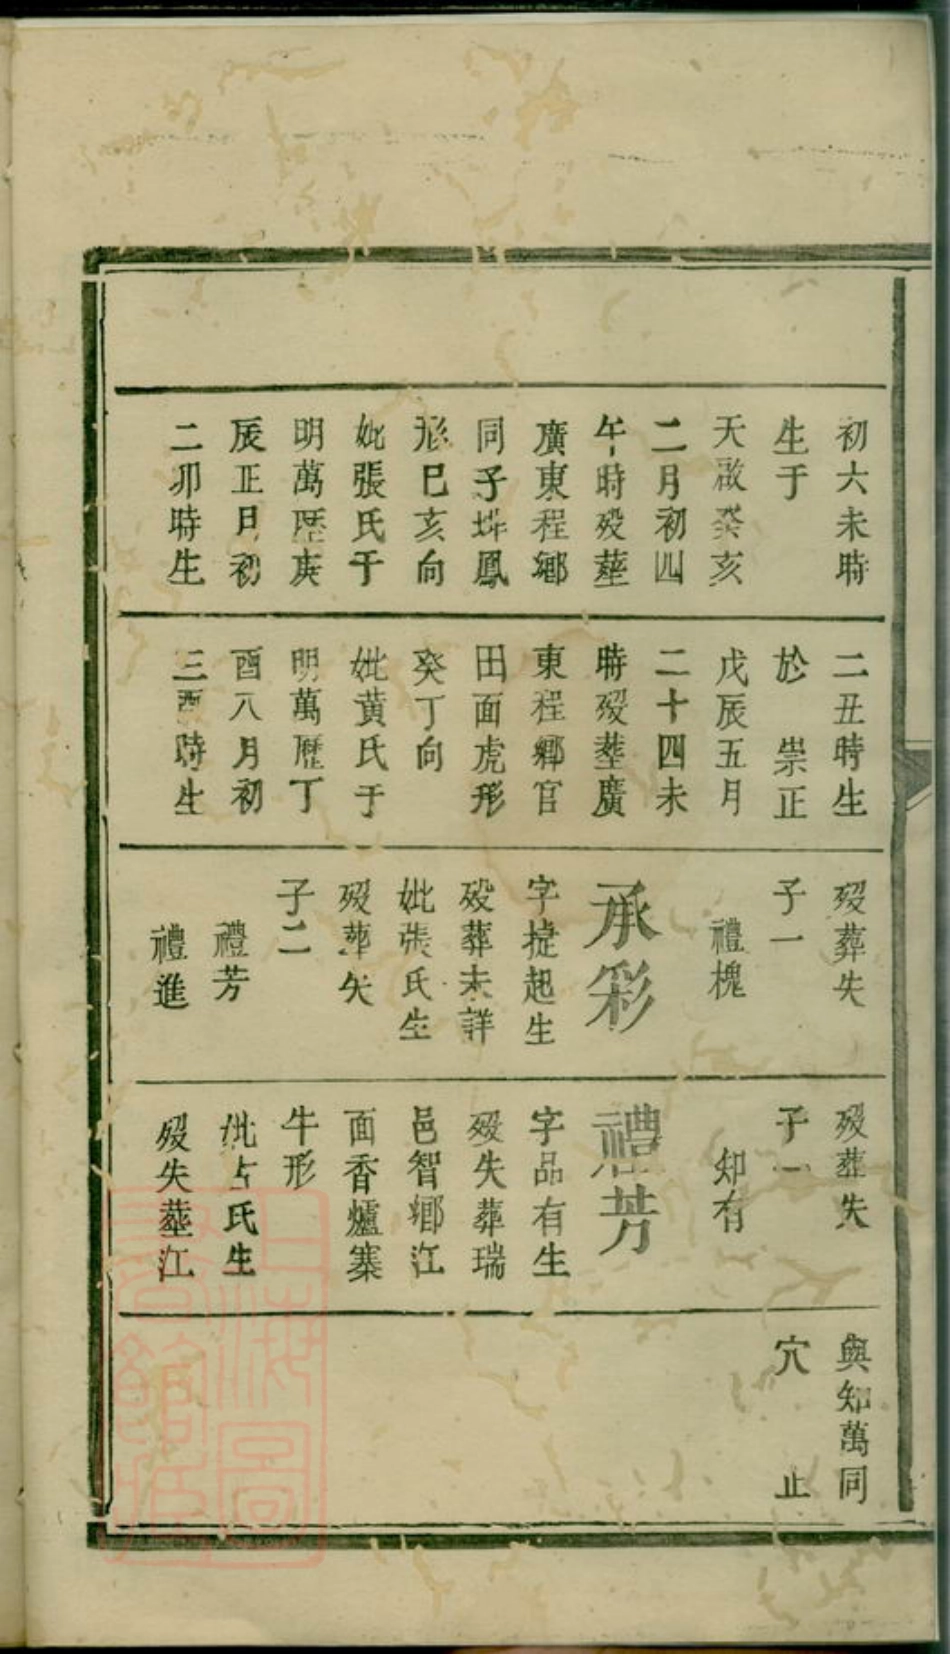 初六未時
生于
天啟癸亥
二月初四
午時歿塟
廣東程鄉
同子塟鳳
形巳亥向
妣張氏于
明萬歷庚
辰正月初
二卯時生
二丑時生
於 崇正
戊辰五月
二十四未
時歿塟廣
東程鄉官
田面虎形
癸丁向
妣黄氏于
明萬歷丁
酉八月初
三酉時生
歿葬失
子一
禮槐
承彩
字㨗起生
歿葬未詳
妣張氏生
歿葬失
子二
禮芳
禮進
歿塟失
子一
知有
禮芳
字品有生
歿失葬瑞
邑智鄉江
面香爐寨
牛形
妣古氏生
歿失塟江
與知萬同
穴 止
上海圖
書館藏